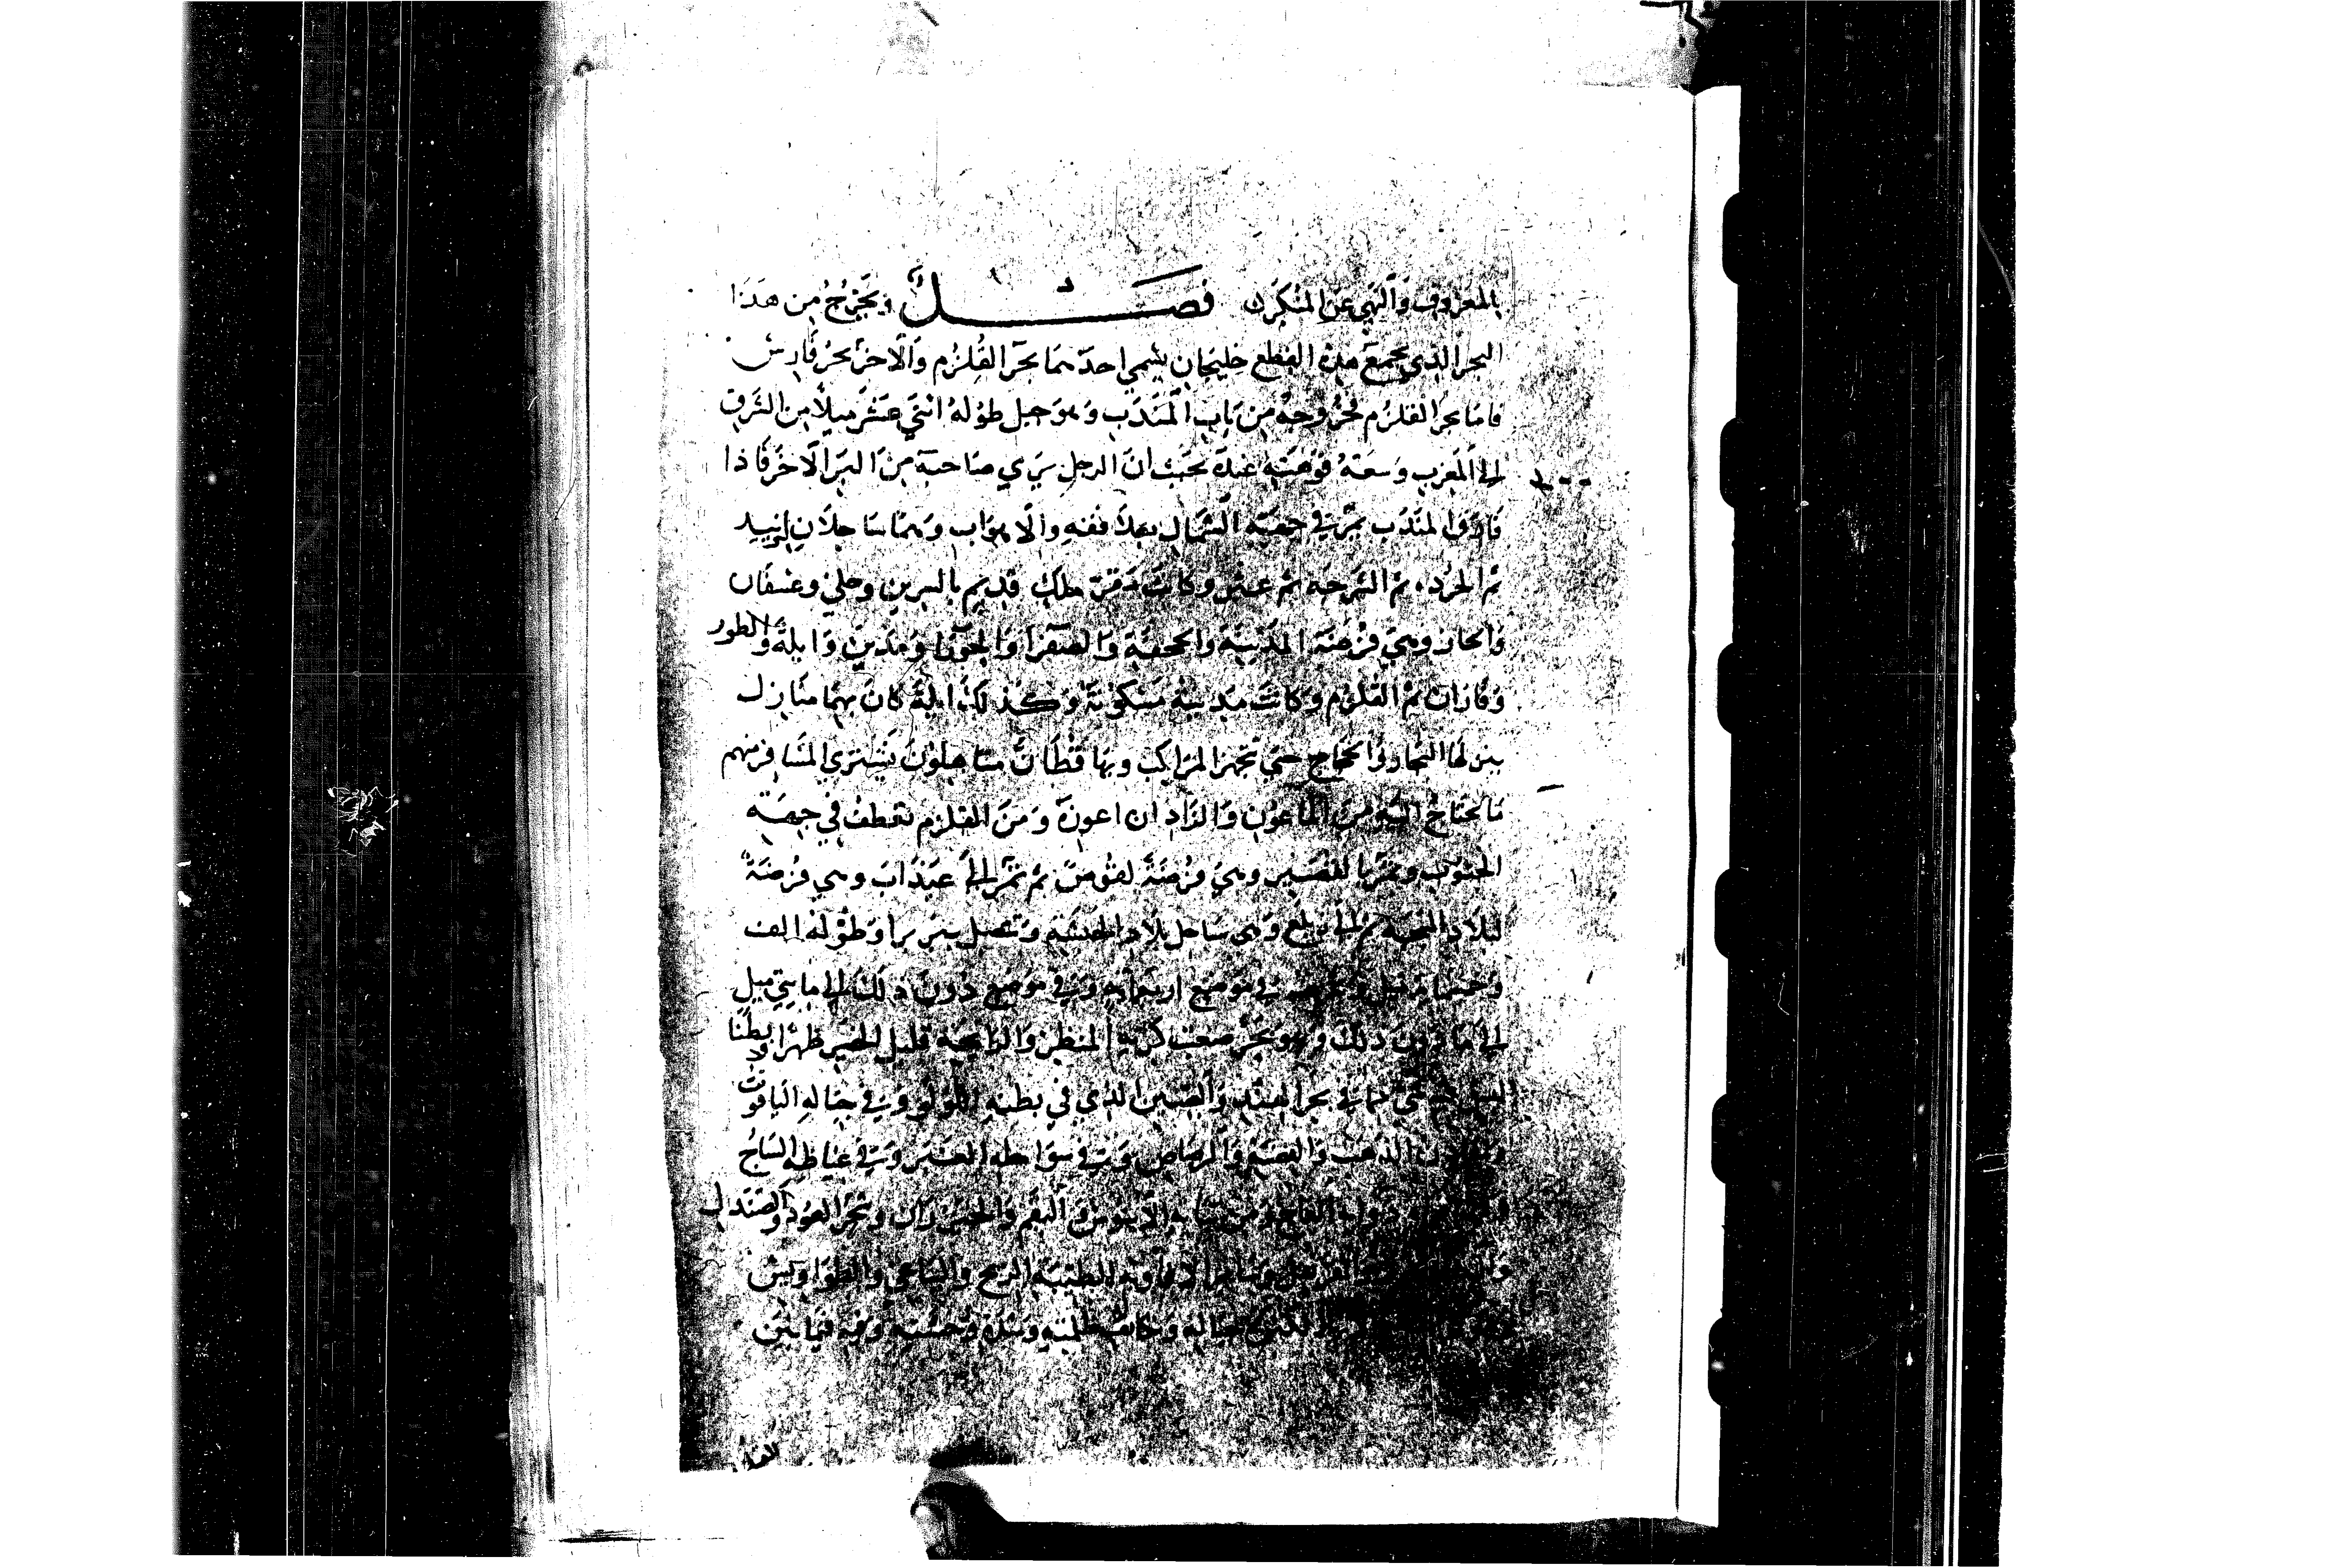 بالمعروف والنهي عن المنكر فصل ويخرج من هذا
البحر الذي يجمع هذه القطع خليجان يسمي احدهما بحر القلزم والاخر بحر فارس
فاما بحر القلزم فخروجه من باب المندب وهو جبل طوله اثني عشر ميلا من الشرق
الى المغرب وسعة فوهته عنده بحيث ان الرجل يري صاحبه من البر الاخر فاذا
فارق المندب يمر في جهة الشمال بغلافقه والاهواب وهما ساحلان لزبيد
ثم الحردة ثم الشرجة ثم عثر وكانت مقر ملك قديم بالسرين وحلي وعسفان
والجار وهي فرضة المدينة والجحفة والصفرا والحورا ومدين وايلة والطور
وفاران ثم القلزم وكانت مدينة مسكونة وكذلك ايلة كان بهما منازل
ينزلها التجار والحجاج حتى تجهز المراكب وبها قطان متاهلون يشتري المسافر منهم
ما يحتاج اليه من الماعون والزاد ان اعوزه ومن القلزم تعطف في جهة
الجنوب وتمر بالقصير وهي فرضة لقوص ثم تمر الى عيذاب وهي فرضة
لبلاد البجة ثم الى زيلع وهي ساحل بلاد الحبشة وتتصل ببربرا وطوله الف
وخمسماية ميل وعرضه في موضع اربعماية وفي موضع دون ذلك الى مايتي ميل
الى ما دون ذلك وهو بحر صعب كريه المنظر والرايحة قليل الخير ظهرا وبطنا
ليس فيه شي مما في بحر الهند والصين الذي في بطنه اللولو وفي جباله الياقوت
الذهب والفضة والرصاص وفي سواحله العنبر وفي غياضه الساج
العاج ومن الابنوس والبقم والخيزران وشجر العود والصندل
القرنفل وساير الافاويه الطيبة الريح والافاعي والطواويس
وكانت ظلمته وشدة وحشته وفيه فيما بين